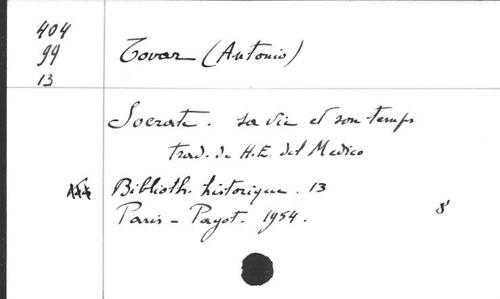 404
99
13
Tovar (Antonio)
Socrate. sa vie et son temps
trad. de H.E. del Medico
Biblioth. historique. 13
Paris - Payot. 1954.
8°